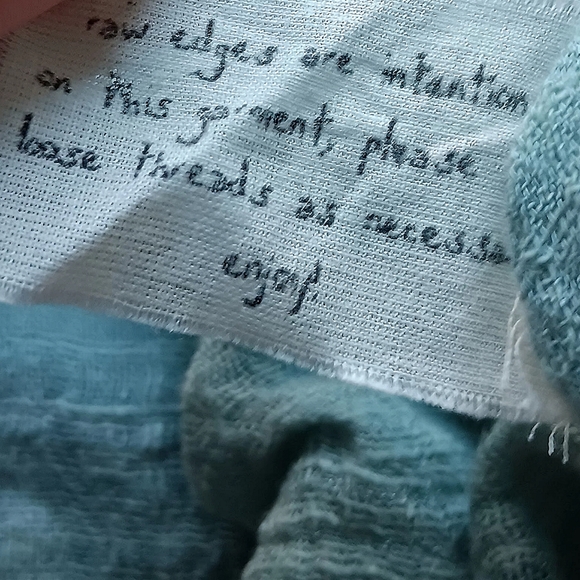 raw edges are intention
on this garment, please
loose threads as necessa
enjoy!